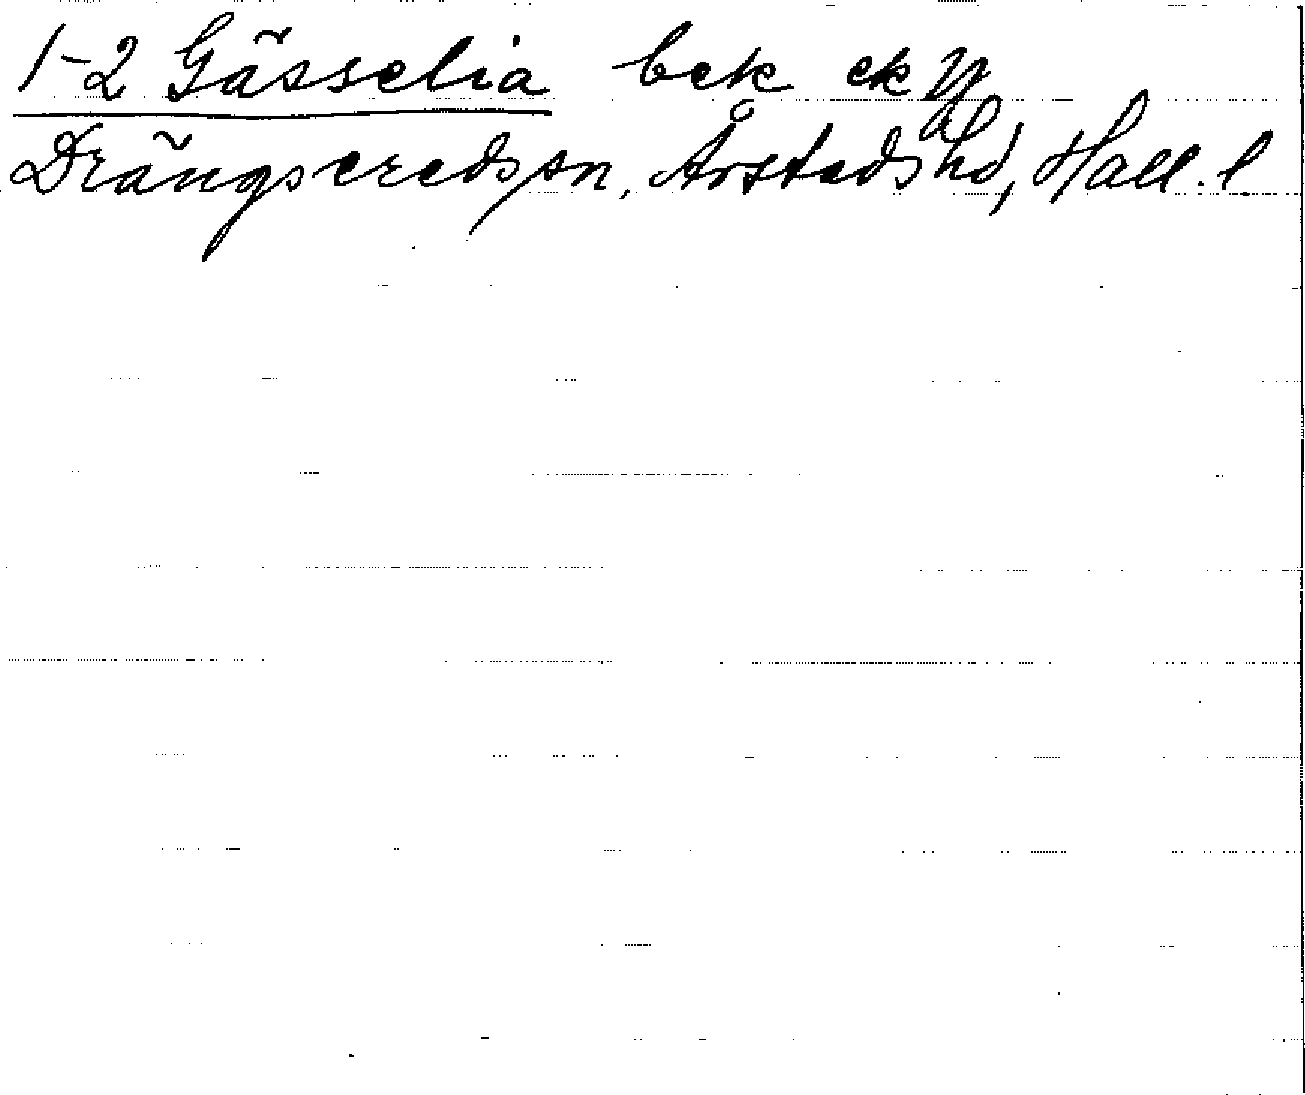 1-2 Gässelia bek ek
Drängseredssn, Årstads hd, Hall. l.